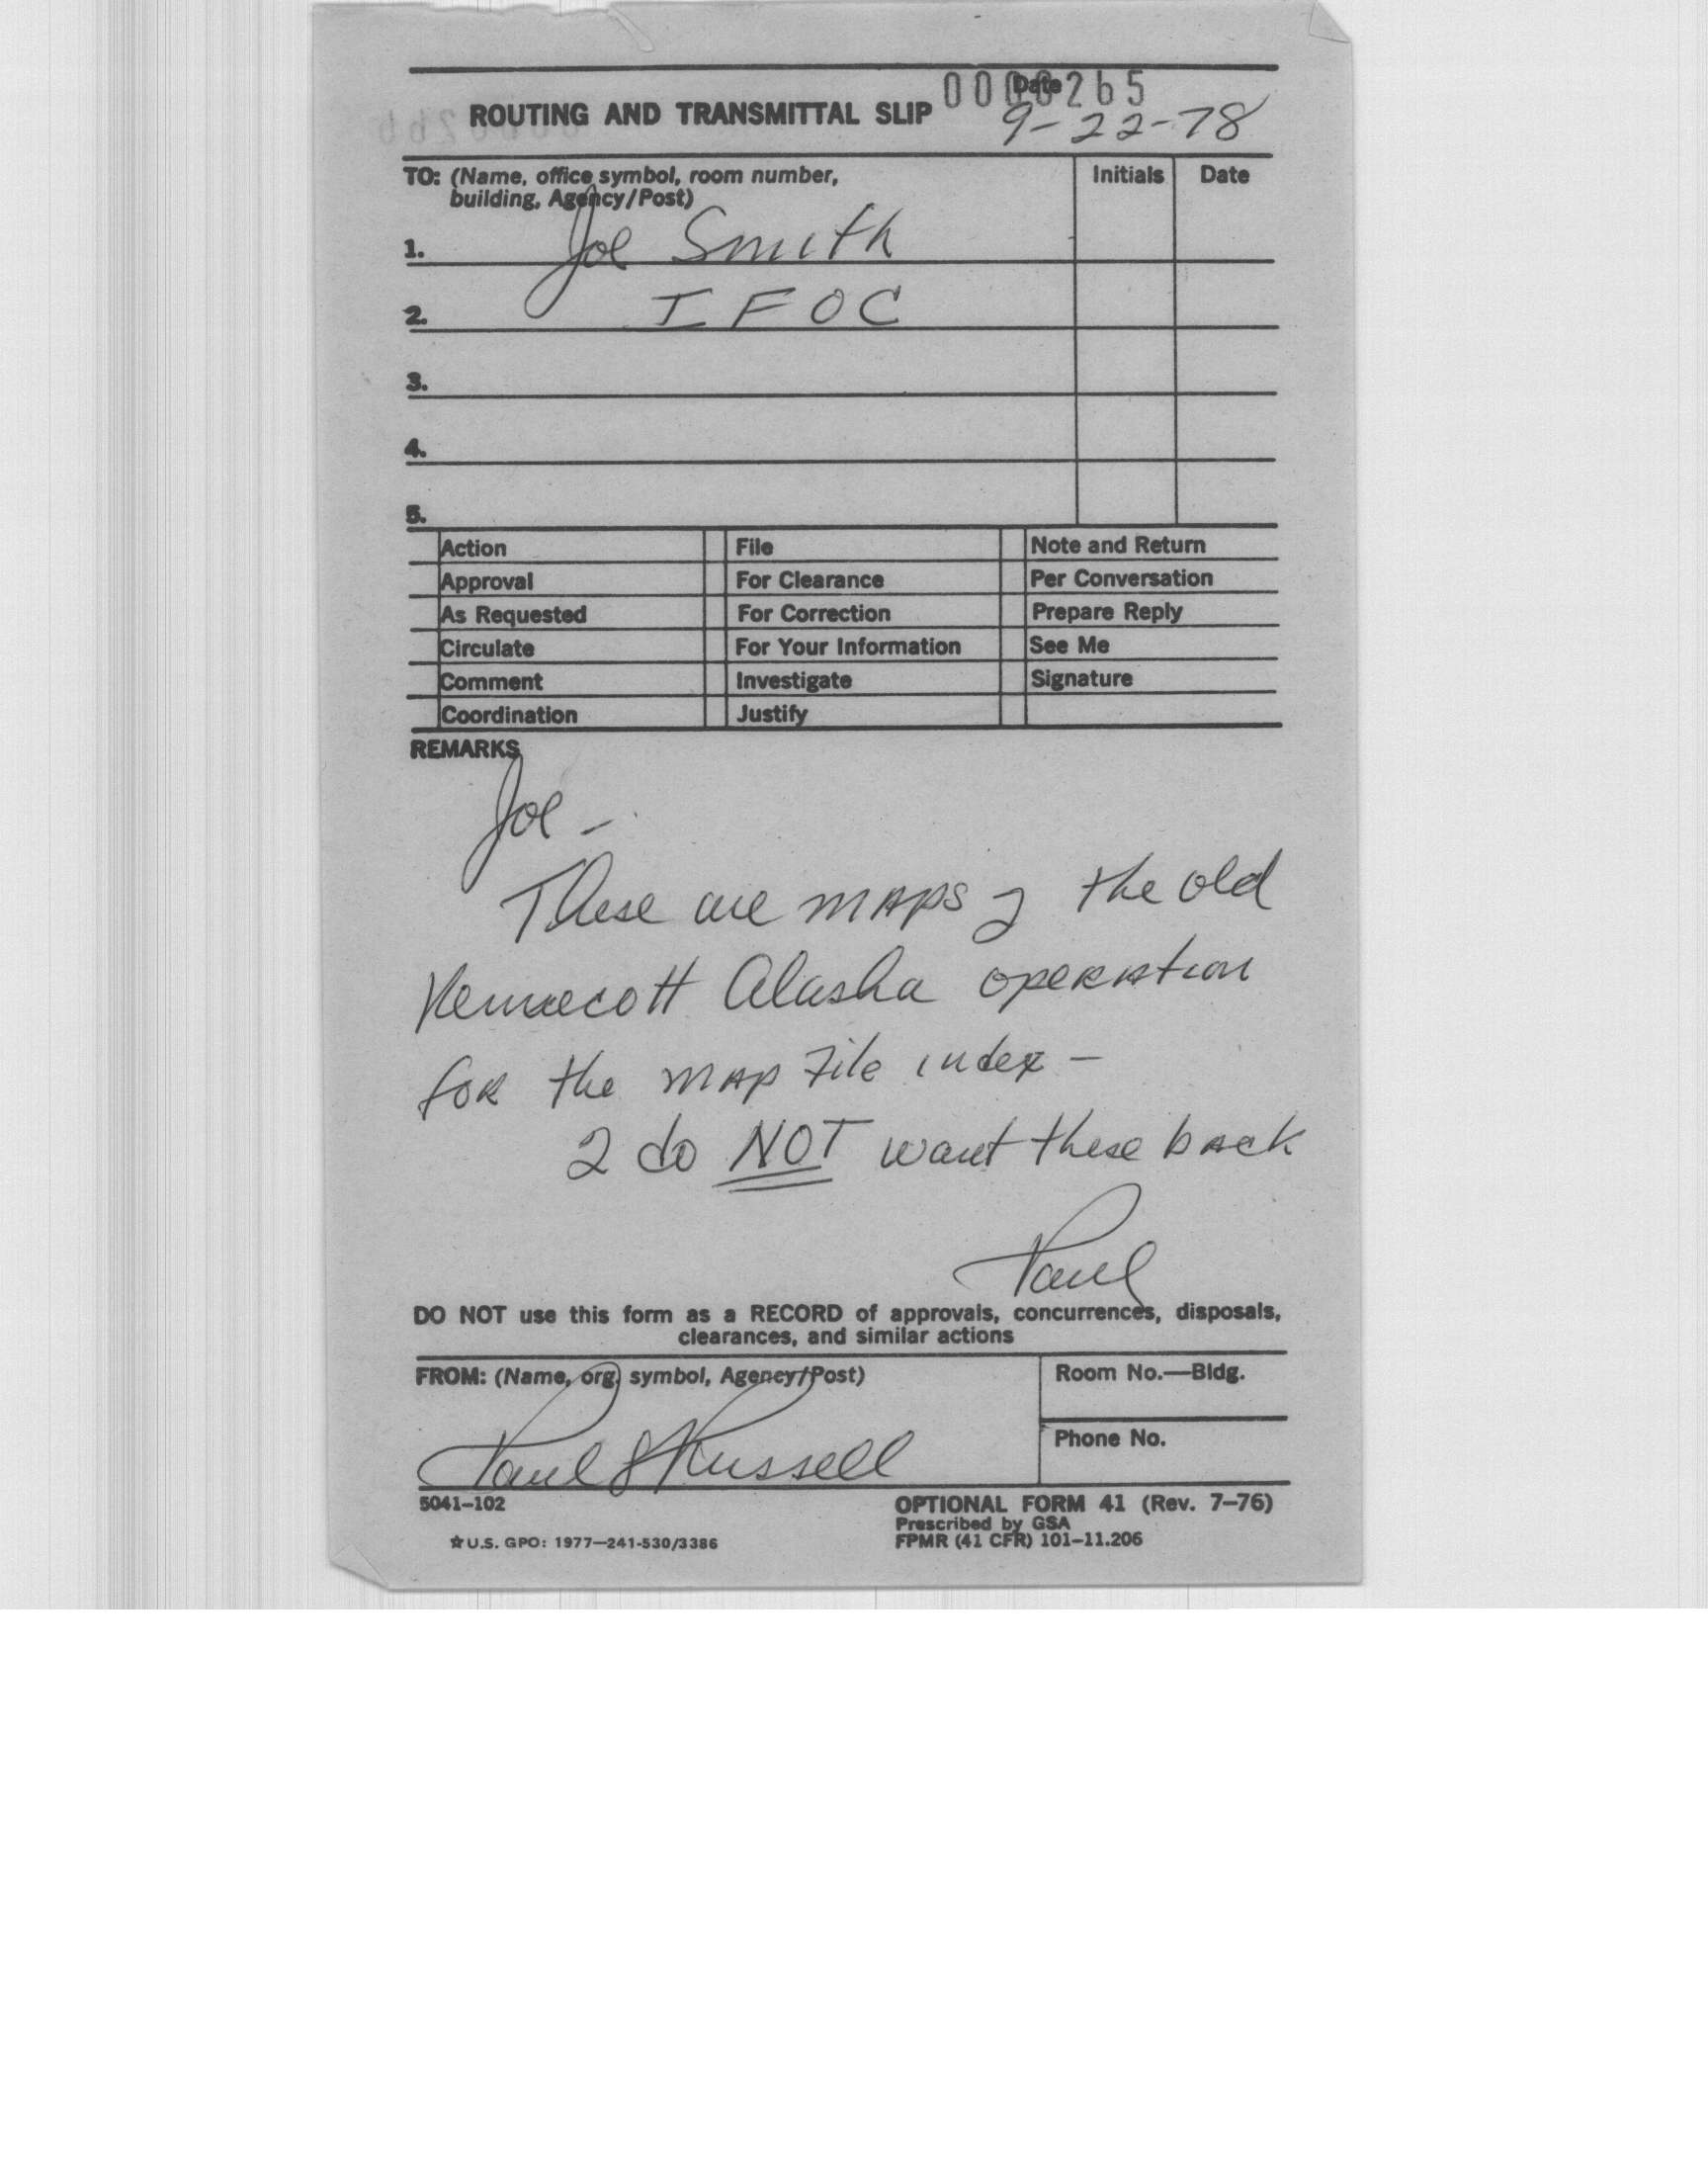 0000265
ROUTING AND TRANSMITTAL SLIP
Date
9-22-78
TO: (Name, office symbol, room number,
building, Agency/Post)
Initials
Date
1. Joe Smith
2. IFOC
3.
4.
5.
Action File Note and Return
Approval For Clearance Per Conversation
As Requested For Correction Prepare Reply
Circulate For Your Information See Me
Comment Investigate Signature
Coordination Justify
REMARKS
Joe -
These are maps of the old
Kennecott Alaska operation
for the map file index -
I do NOT want these back
Paul
DO NOT use this form as a RECORD of approvals, concurrences, disposals,
clearances, and similar actions
FROM: (Name, org. symbol, Agency/Post)
Room No.—Bldg.
Paul Russell
Phone No.
5041-102
OPTIONAL FORM 41 (Rev. 7-76)
Prescribed by GSA
☆U.S. GPO: 1977—241-530/3386
FPMR (41 CFR) 101-11.206